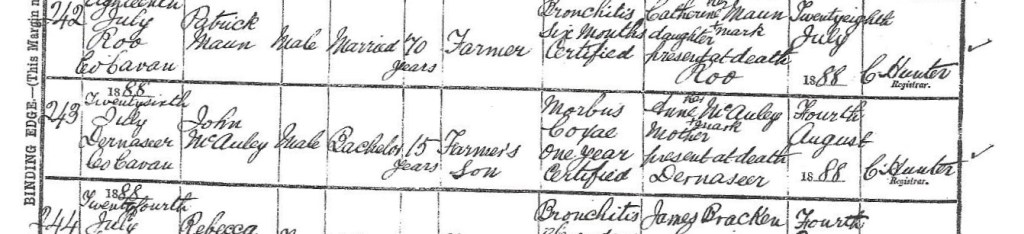 BINDING EDGE.—(This Margin n
242 Eighteenth July Roo Co Cavan Patrick Maun Male Married 70 years Farmer Bronchitis Six Months Certified Catherine her + mark Maun daughter present at death Roo Twentyeighth July 1888 C Hunter Registrar.
243 1888 Twentysixth July Dernaseer Co Cavan John McAuley Male Bachelor 15 years Farmer's Son Morbus Coxae one year Certified Anne her + mark McAuley Mother present at death Dernaseer Fourth August 1888 C. Hunter Registrar.
244 1888 Twentyfourth July Rebecca Bronchitis James Bracken Fourth